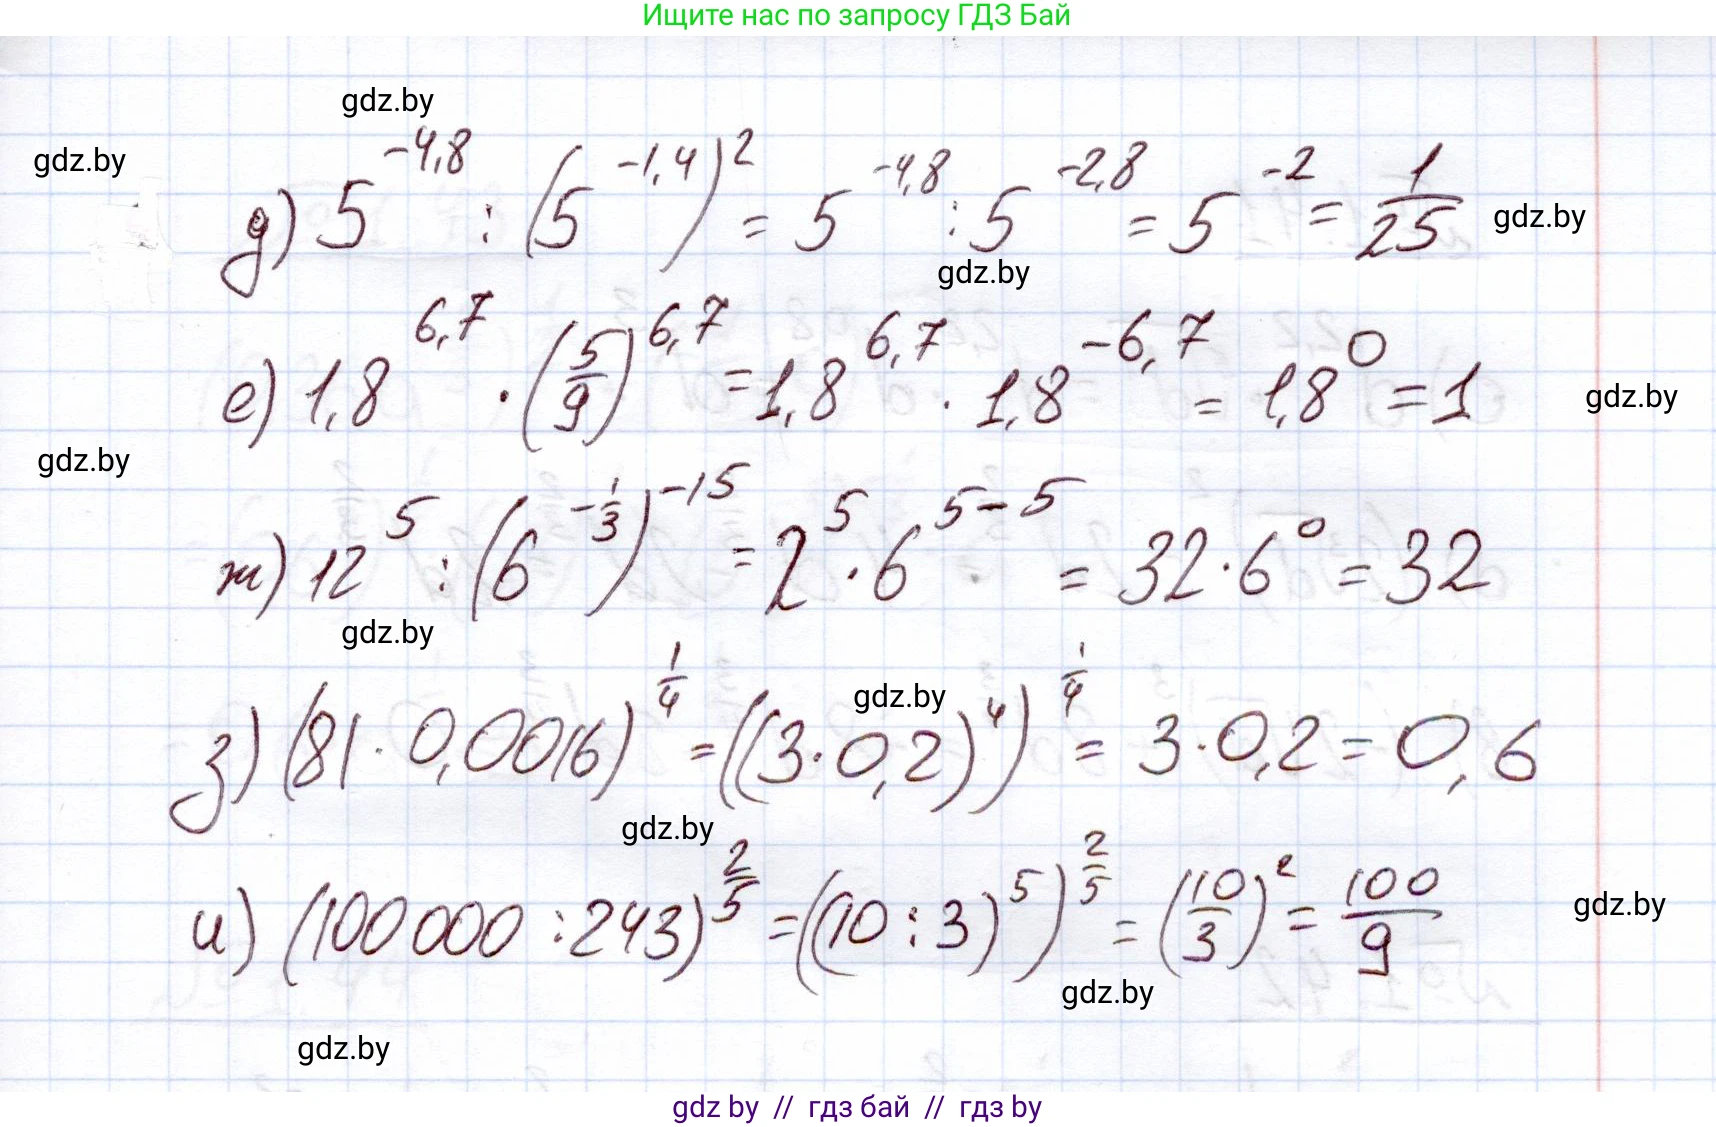 Ищите нас по запросу ГДЗ Бай
gdz.by
gdz.by
д) 5^{-4,8} : (5^{-1,4})^2 = 5^{-4,8} : 5^{-2,8} = 5^{-2} = \frac{1}{25}
gdz.by
gdz.by
е) 1,8^{6,7} · (\frac{5}{9})^{6,7} = 1,8^{6,7} · 1,8^{-6,7} = 1,8^0 = 1
gdz.by
gdz.by
ж) 12^5 : (6^{-\frac{1}{3}})^{-15} = 2^5 · 6^{5-5} = 32 · 6^0 = 32
gdz.by
gdz.by
з) (81 · 0,0016)^{\frac{1}{4}} = ((3 · 0,2)^4)^{\frac{1}{4}} = 3 · 0,2 = 0,6
gdz.by
и) (100 000 : 243)^{\frac{2}{5}} = ((10 : 3)^5)^{\frac{2}{5}} = (\frac{10}{3})^2 = \frac{100}{9}
gdz.by
gdz.by
gdz.by
gdz by // гдз бай // гдз by